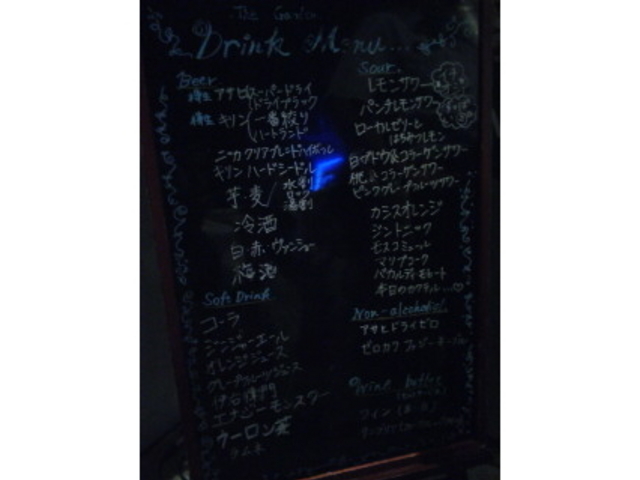 The Garden
Drink Menu...
Beer
樽生 アサヒ スーパードライ
ドライブラック
樽生 キリン 一番搾り
ハートランド
ニッカ クリアブレンドハイボール
キリン ハードシードル
芋・麦 水割
ロック
湯割
冷酒
白・赤・ヴァンショー
梅酒
Soft Drink
コーラ
ジンジャーエール
オレンジジュース
グレープフルーツジュース
伊右衛門
エナジーモンスター
ウーロン茶
ラムネ
Sour
レモンサワー
パンチレモンサワー
ローヤルゼリーと
はちみつレモン
白ブドウ&コラーゲンサワー
桃&コラーゲンサワー
ピンクグレープフルーツサワー
カシスオレンジ
ジントニック
モスコミュール
マリブコーク
バカルディモヒート
本日のカクテル...♡
Non-alcohol
アサヒドライゼロ
ゼロカク
Drink bottle
ワイン (白・赤)